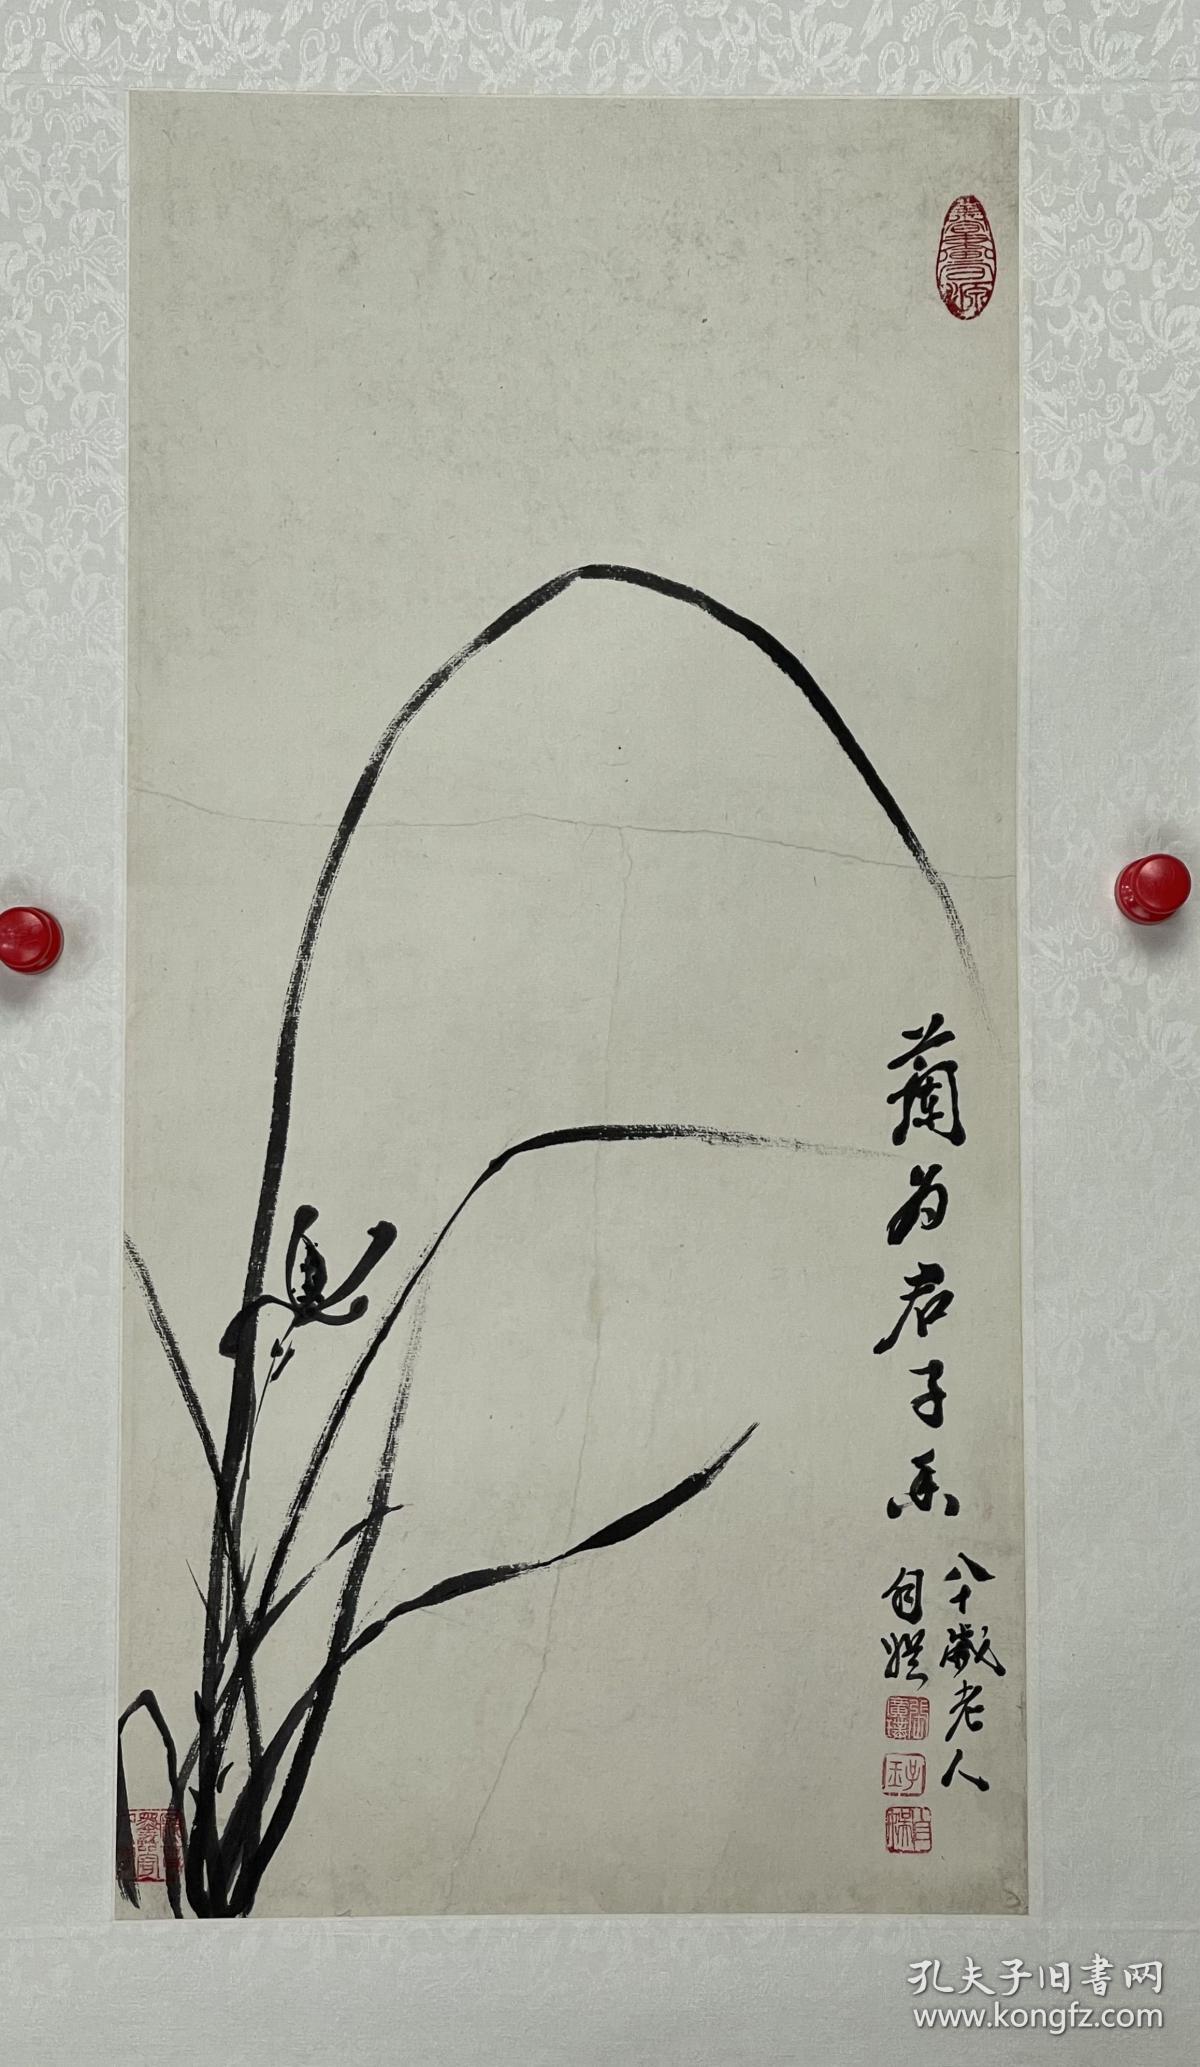 蘭为君子香
八十歲老人
自娱
孔夫子旧書网
www.kongfz.com